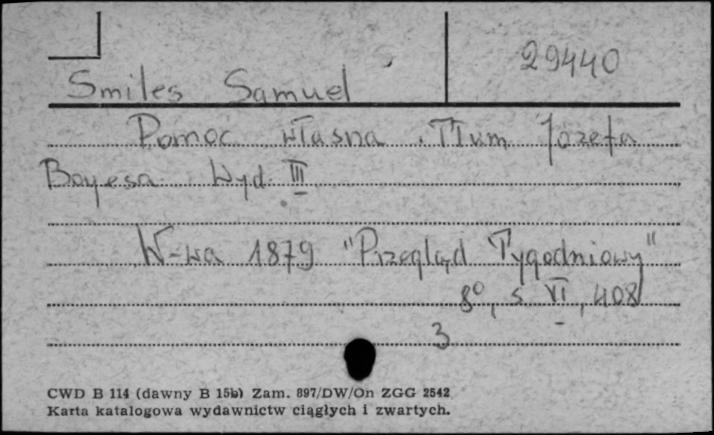 29440
Smiles Samuel
Pomoc własna. Tłum Józefa
Boyesa Wyd. III
W-wa 1879 "Przegląd Tygodniowy"
8°, s VI, 408
3
CWD B 114 (dawny B 15b) Zam. 897/DW/On ZGG 2542
Karta katalogowa wydawnictw ciągłych i zwartych.